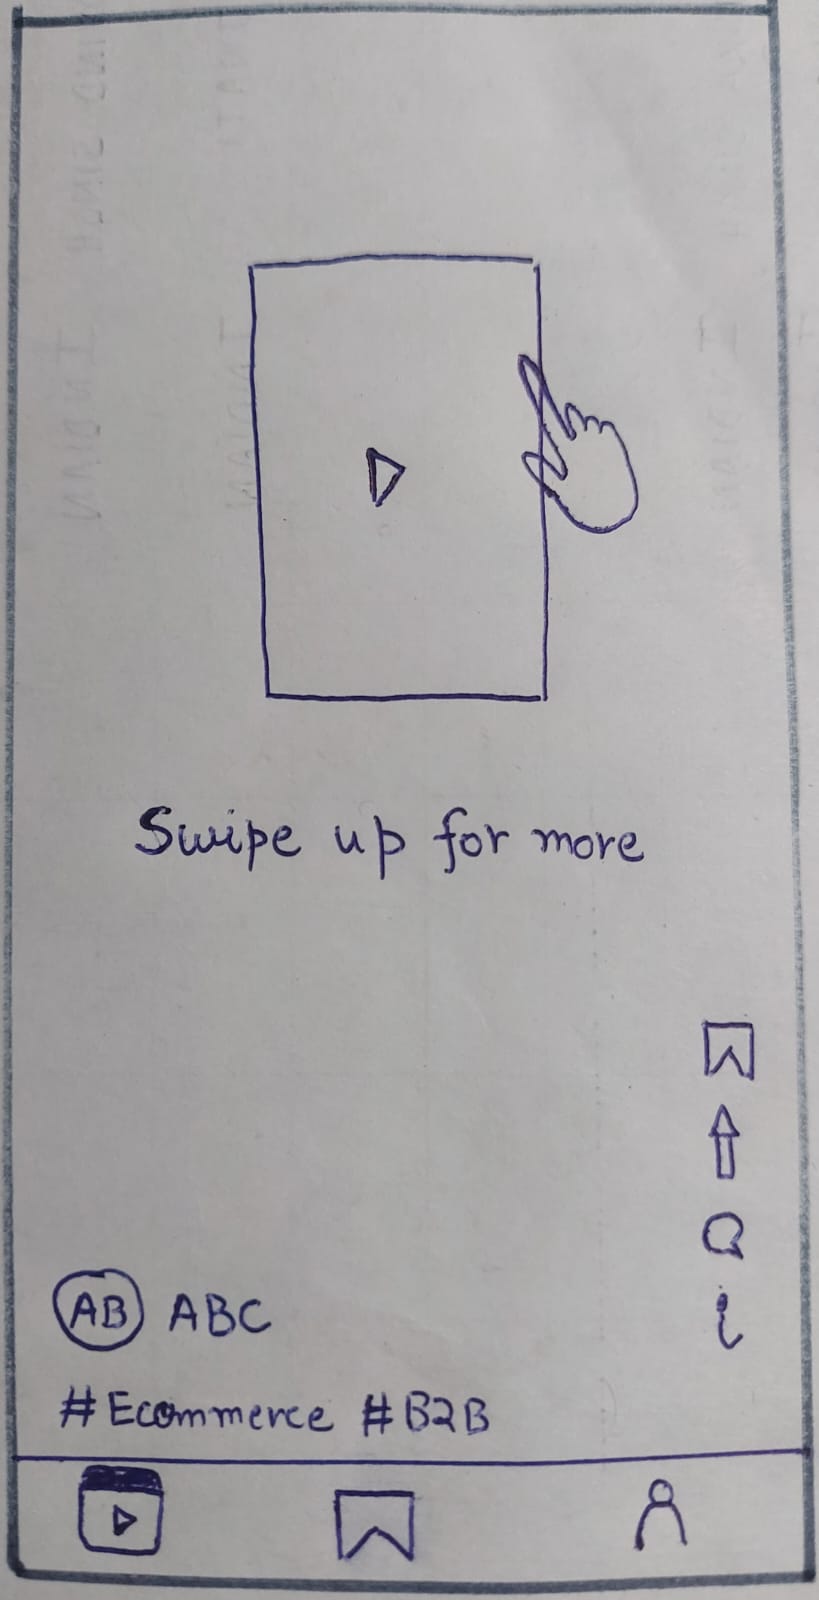 Swipe up for more
i
AB ABC
#Ecommerce #B2B